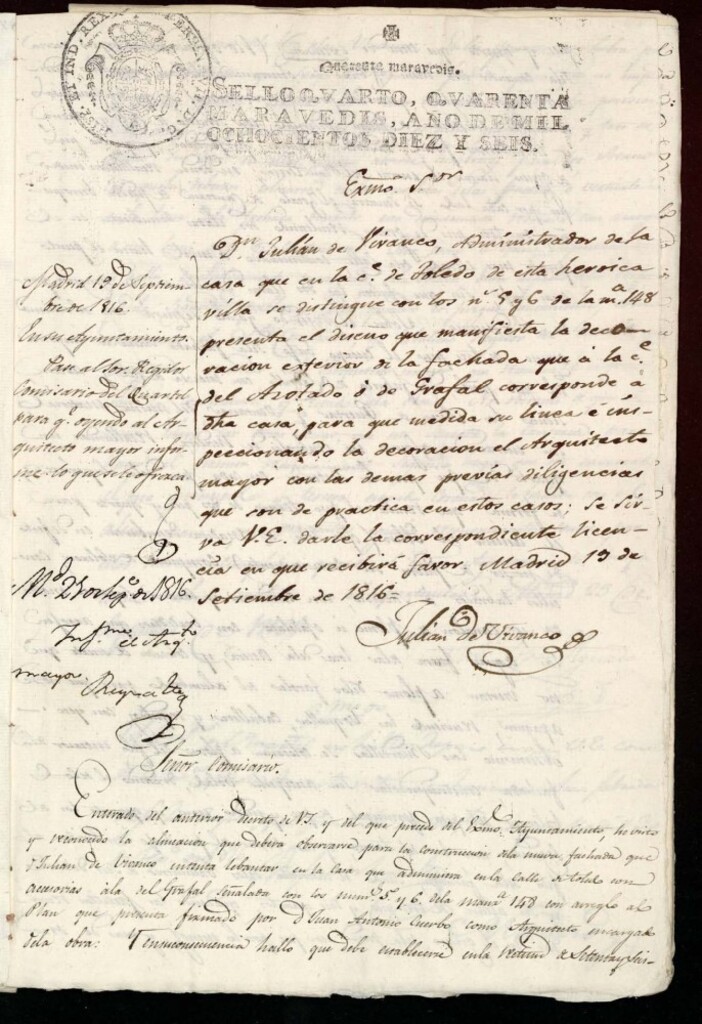 HISP. ET IND. REX
Quarenta maravedis.
SELLO QVARTO, QVARENTA
MARAVEDIS, AÑO DE MIL
OCHOCIENTOS DIEZ Y SEIS.
Exmô Sor
Dn. Julián de Vivanco, Administrador de la
casa que en la c.e de Toledo de esta heroica
villa se distingue con los n.s 5 y 6 de la m.a 148
presenta el diseño que manifiesta la deco-
racion exterior de la fachada que à la c.e
del Azotado ò de Grafal corresponde a
dha casa, para que medida su linea è ins-
peccionando la decoracion el Arquitecto
mayor con las demas previas diligencias
que son de practica en estos casos; se sir-
va V.E. darle la correspondiente licen-
cia en que recibirá favor. Madrid 13 de
Setiembre de 1816=
Julián de Vivanco
Madrid 19 de Septiem-
bre de 1816.
En su Ayuntamiento.
Pase al Sor. Regidor
Comisario del Quartel
para q.e oyendo al Ar-
quitecto mayor infor-
me lo que se le ofrezca
M.d 23 de Sep.e de 1816.
Informe el Arq.to
mayor.
Señor Comisario.
Enterado del anterior Decreto de V.S. y del que precede del Exmo. Ayuntamiento, he visto
y reconocido la alineacion que deberá observarse para la construccion de la nueva fachada que
d. Julian de Vivanco intenta lebantar en la Casa que administra en la calle de Toledo con
accesorias á la del Grafal señalada con los num.s 5. y 6. de la manz.a 148 con arreglo al
Plan que presenta firmado por d. Juan Antonio Cuerbo como Arquitecto encargado
de la obra: Y en su consecuencia hallo que debe establecerse en la rectitud de Setenta y seis-